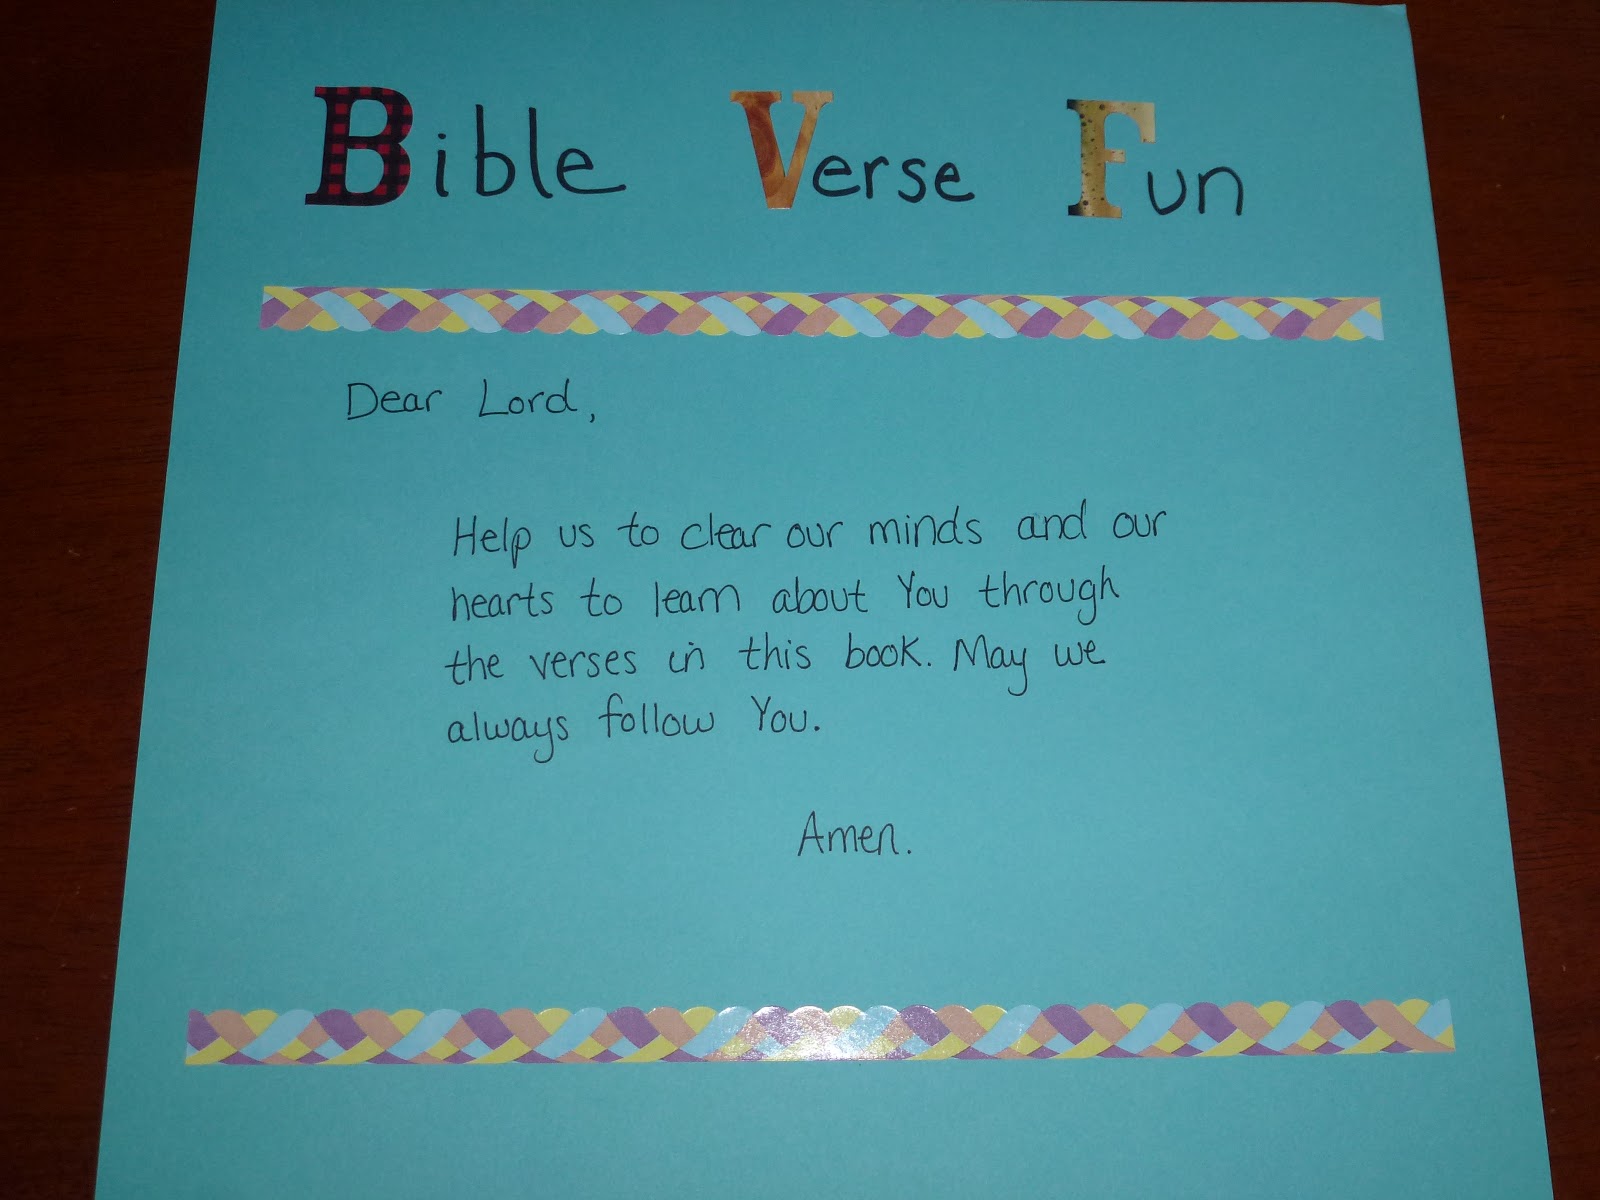 Bible Verse Fun
Dear Lord,
Help us to clear our minds and our
hearts to learn about You through
the verses in this book. May we
always follow You.
Amen.